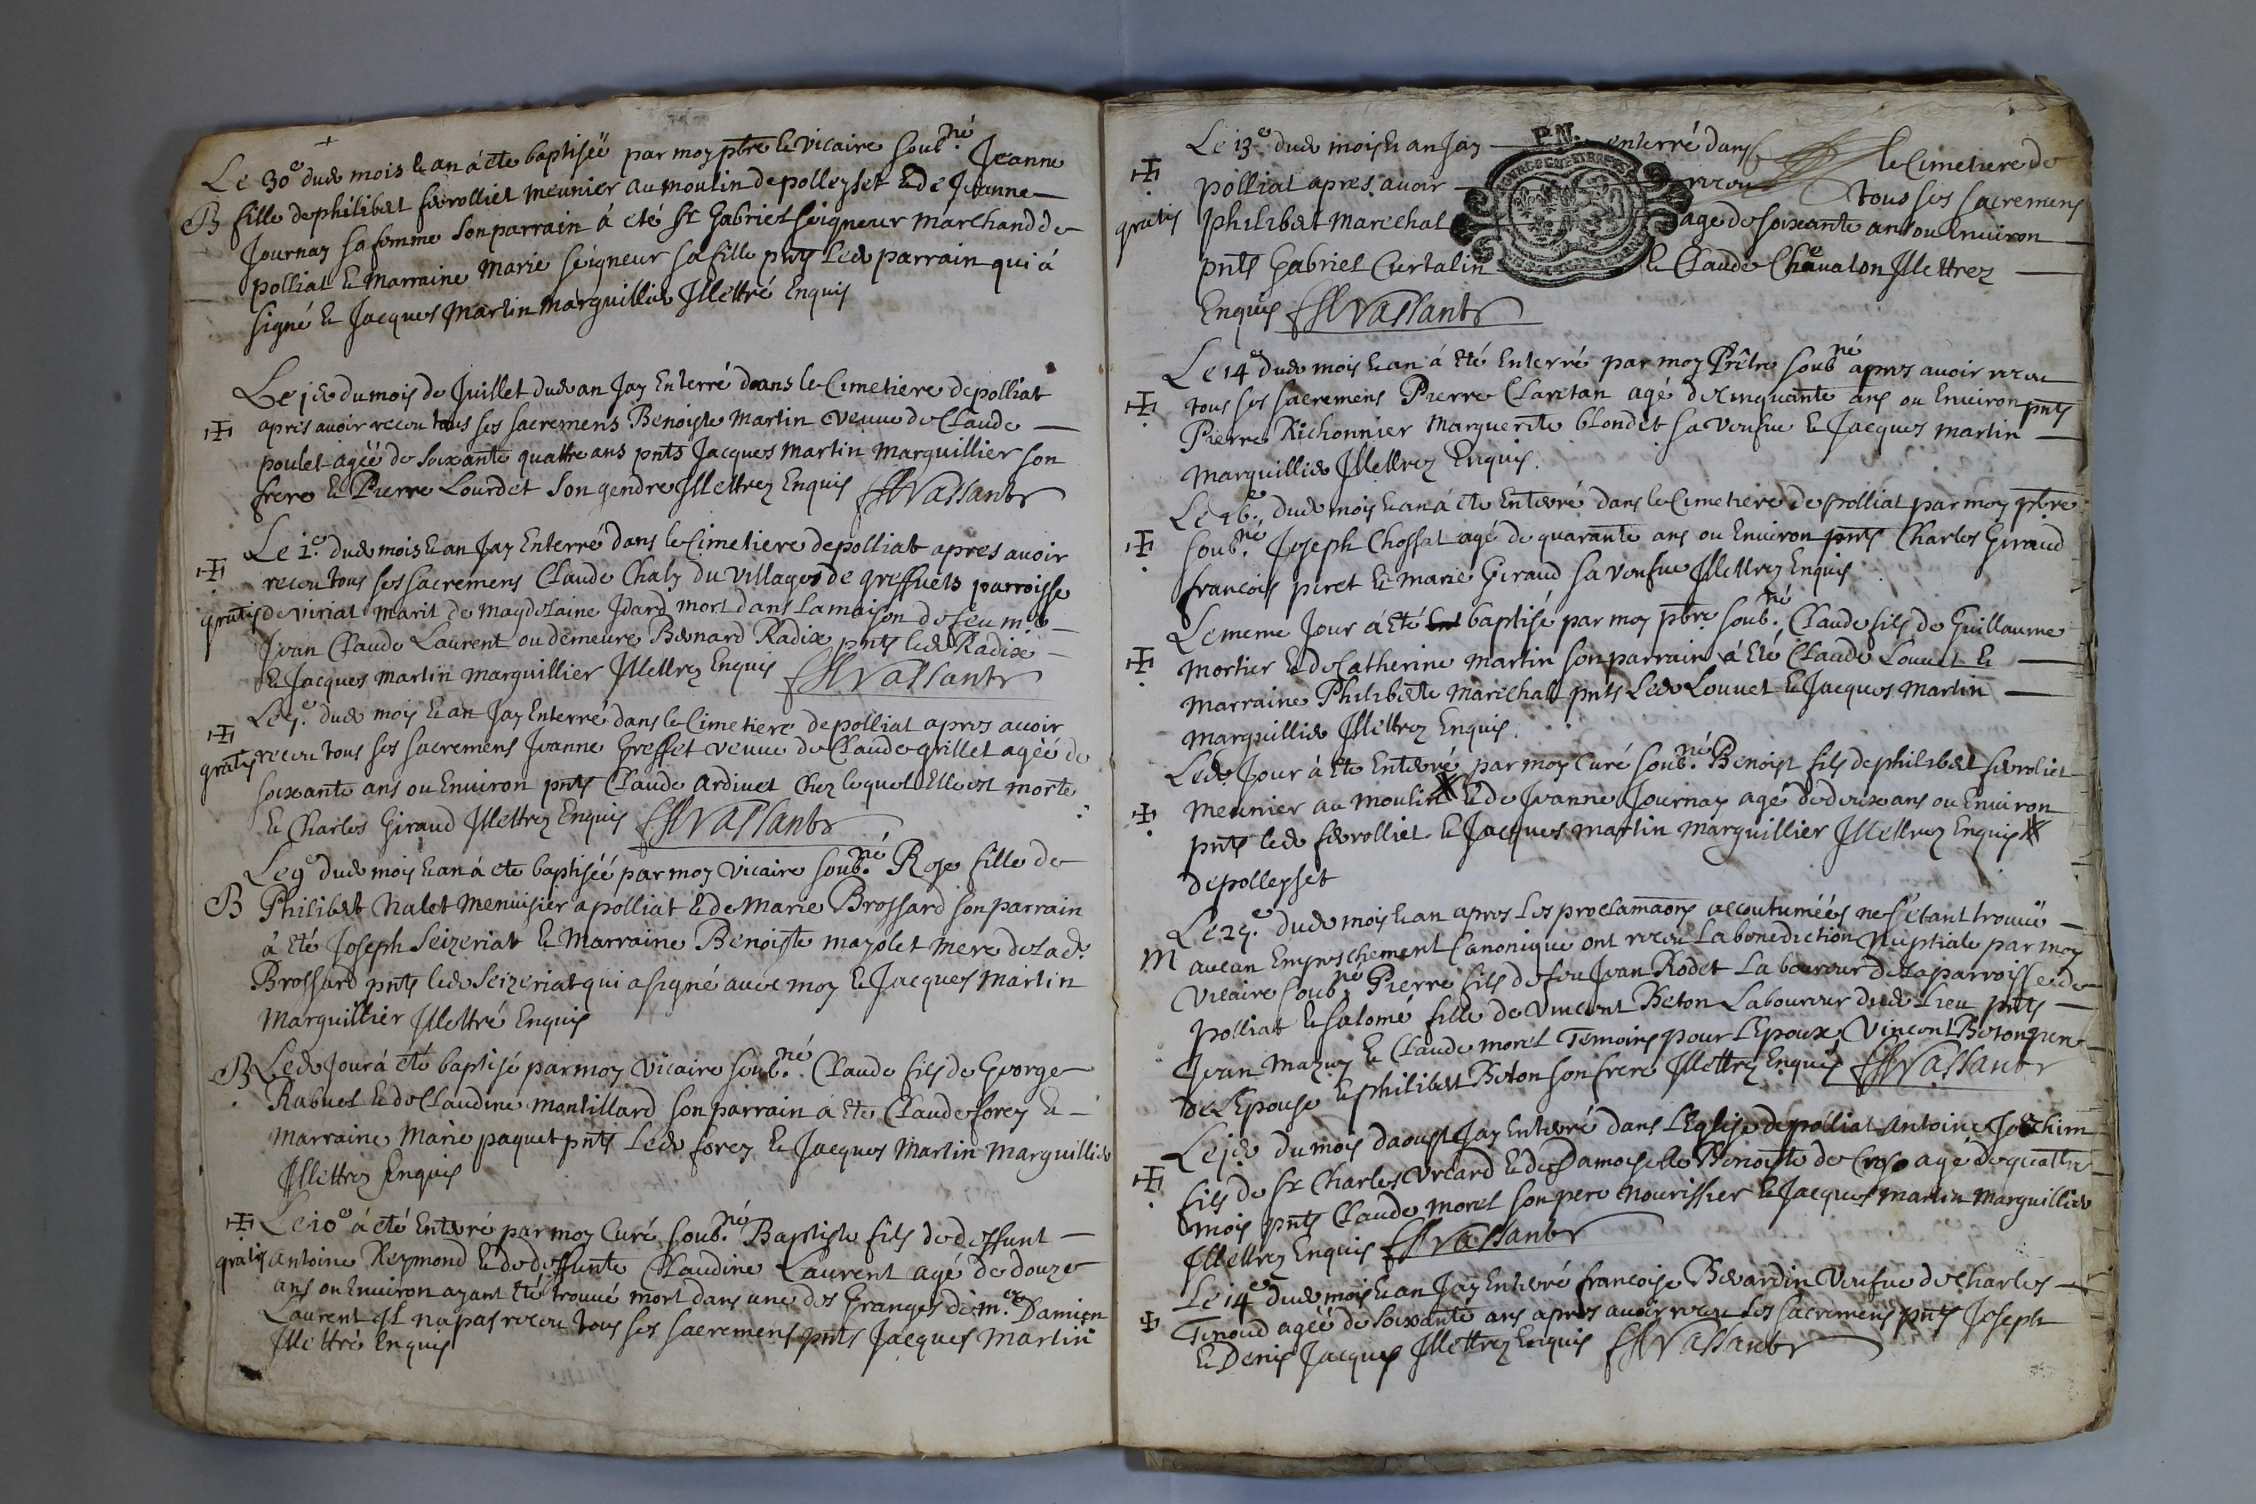 Le 30e dud mois & an à ete baptiseé par moy ptre & vicaire soub.né Jeanne
B fille de philibert feurolliet meunier au moulin de polleyset & de Jeanne
Journay sa femme son parrain à eté Sr Gabriel seigneur marchand de
polliat & marraine Marie seigneur sa fille pnts led parrain qui à
signé & Jacques Martin marguillier Jllettré Enquis
Le jer du mois de Juillet dud an Jay Enterré dans le Cimetiere de polliat
apres avoir receu tous ses sacremens Benoiste Martin veuve de Claude
poulet ageé de soixante quattre ans pnts Jacques Martin Marguillier son
frere & Pierre Lourdet son gendre Jllettrez Enquis Vassant
Le 2e dud mois & an Jay Enterré dans le Cimetiere de polliat apres avoir
receu tous ses sacremens Claude Chaly du village de greffiets parroisse
gratis de viriat marit de magdelaine Jdard mort dans la maison de feu mr
Jean Claude Laurent ou demeure Bernard Radix pnts led Radix
& Jacques Martin marguillier Jllettrez Enquis Vassant
Le 5e dud mois & an Jay Enterré dans le Cimetiere de polliat apres avoir
gratis receu tous ses sacremens Jeanne Greffet veuve de Claude grillet ageé de
soixante ans ou Environ pnts Claude Ardivet Chez lequel Elle est morte
& Charles Giraud Jllettrez Enquis Vassant
Le 9e dud mois & an à ete baptiseé par moy vicaire soub.né Rose fille de
B Philibert Nalet menuisier a polliat & de Marie Brossard son parrain
à eté Joseph Seizeriat & Marraine Benoiste mayolet mere de lad.
Brossard pnts led Seizeriat qui a signé avec moy & Jacques Martin
Marguillier Jllettré Enquis
B Led Jour à eté baptisé par moy vicaire soub.né Claude fils de George
Rabuel & de Claudine Montillard son parrain à ete Claude forey &
Marraine Marie paquet pnts Led forey & Jacques Martin Marguillier
Jllettrez Enquis
Le 10e à eté Enterré par moy Curé soub.né Baptiste fils de deffunt
gratis Antoine Reymond & de deffunte Claudine Laurent agé de douze
ans ou Environ ayant eté trouvé mort dans une des Granges de m.re Damien
Laurent Jl na pas receu tous ses sacremens pnts Jacques Martin
Jllettré Enquis
P.N.
Le 13e dud mois & an Jay enterré dans le Cimetiere de
polliat apres avoir receu tous ses sacremens
gratis philibert Marechal age de soixante ans ou Environ
pnts Gabriel Curtalin & Claude Chevalon Jllettrez
Enquis Vassant
Le 14e dud mois & an à eté Enterré par moy Prêtre soub.né apres avoir receu
tous ses sacremens Pierre Claretan agé de Cinquante ans ou Environ pnts
Pierre Richonnier Marguerite blondet sa veufve & Jacques Martin
Marguillier Jllettrez Enquis.
Le 16e dud mois & an à ete Enterré dans le Cimetiere de polliat par moy ptre
soub.né Joseph Chossat agé de quarante ans ou Environ pnts Charles Giraud
francois piret & marie Giraud sa veufve Jllettrez Enquis
Le meme Jour à eté baptisé par moy ptre soub.né Claude fils de Guillaume
Mortier & de Catherine Martin son parrain à Eté Claude Louvet &
Marraine Philiberte Marechal pnts Led Louvet & Jacques Martin
Marguillier Jllettrez Enquis.
Led Jour à Ete Enterré par moy Curé soub.né Benoist fils de philibert feuroliet
Meunier au moulin & de Jeanne Journay agé de deux ans ou Environ
pnts led feurolliet & Jacques Martin marguillier Jllettrez Enquis
de polleyset
Le 25e dud mois & an apres les proclamaons accoutumeés ne s'étant trouvé
M aucun Empeschement Canonique ont receu La benediction Nuptiale par moy
Vicaire soub.né Pierre fils de feu Jean Rodet Laboureur de la parroisse de
polliat & salomé fille de Vincent Beton Laboureur dud Lieu pnts
Jean Mazuy & Claude morel Temoins pour L'Epoux, Vincent Beton pere
de L'Epouse & philibert Beton son frere Jllettrez Enquis Vassant
Le jer du mois daoust Jay Enterré dans L'Eglise de polliat Antoine Joachim
fils de Sr Charles & de Damoiselle Benoiste de agé de quattre
mois pnts Claude Morel son pere nourissier & Jacques Martin Marguillier
Jllettrez Enquis Vassant
Le 14e dud mois & an Jay Enterré francoise Berardin Veufve de Charles
Tenoud ageé de soixante ans apres avoir receu les sacremens pnts Joseph
& Denis Jacques Jllettrez Enquis Vassant